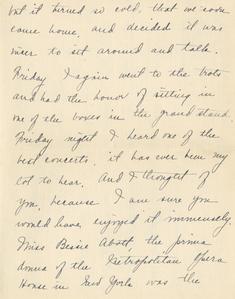 but it turned so cold, that we soon
came home, and decided it was
nicer to sit around and talk.
Friday I again went to the trots
and had the honor of sitting in
one of the boxes in the grand stand.
Friday night I heard one of the
best concerts, it has ever been my
lot to hear. And I thought of
you, because I am sure you
would have enjoyed it immensely.
Miss Bessie Abott, the prima
donna of the Metropolitan Opera
House in New York was the